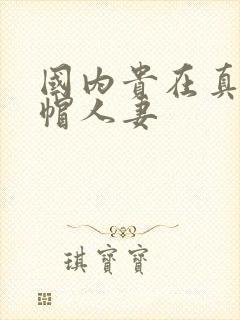 國内貴在真
帽人妻
琪寶寶